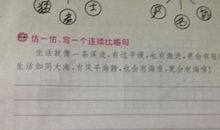 猛 士 名
仿一仿,写一个连续比喻句
生活就像一条溪流,有过平缓,也有激进,更会有
生活如同大海,有风平海静,也会有海浪,更会有海啸!